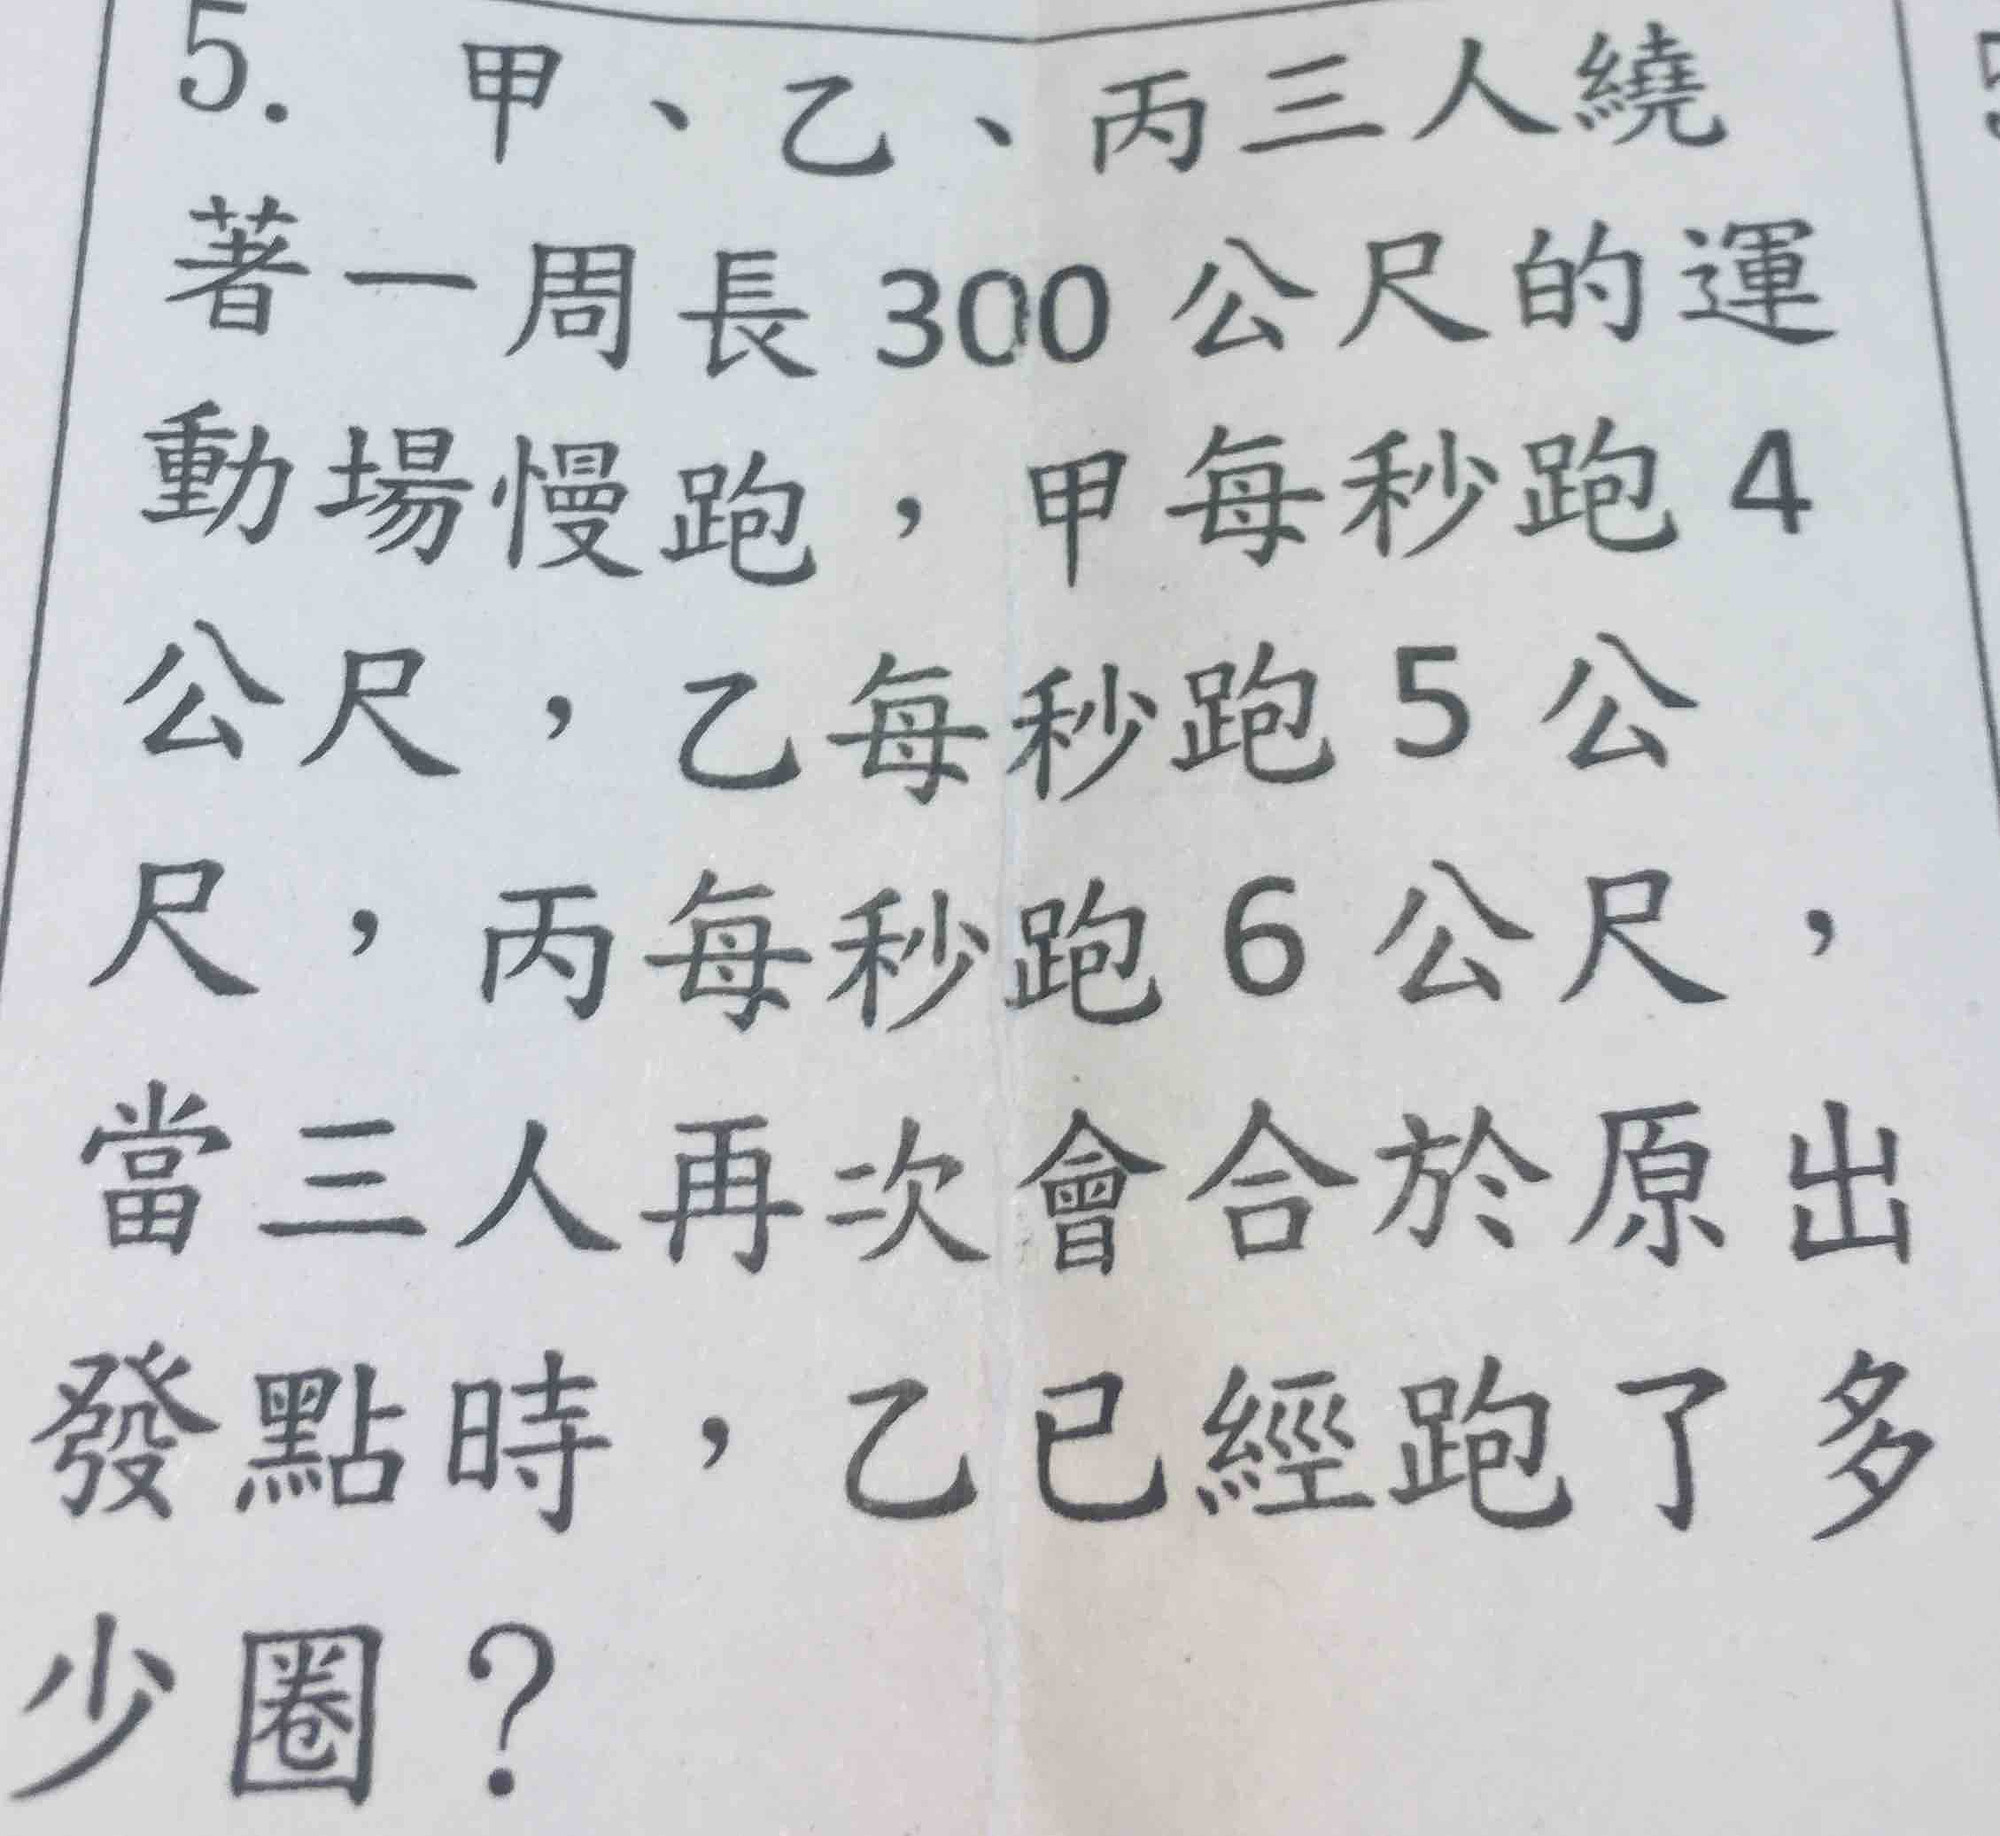 5. 甲、乙、丙三人繞
著一周長 300 公尺的運
動場慢跑，甲每秒跑 4
公尺，乙每秒跑 5 公
尺，丙每秒跑 6 公尺，
當三人再次會合於原出
發點時，乙已經跑了多
少圈？